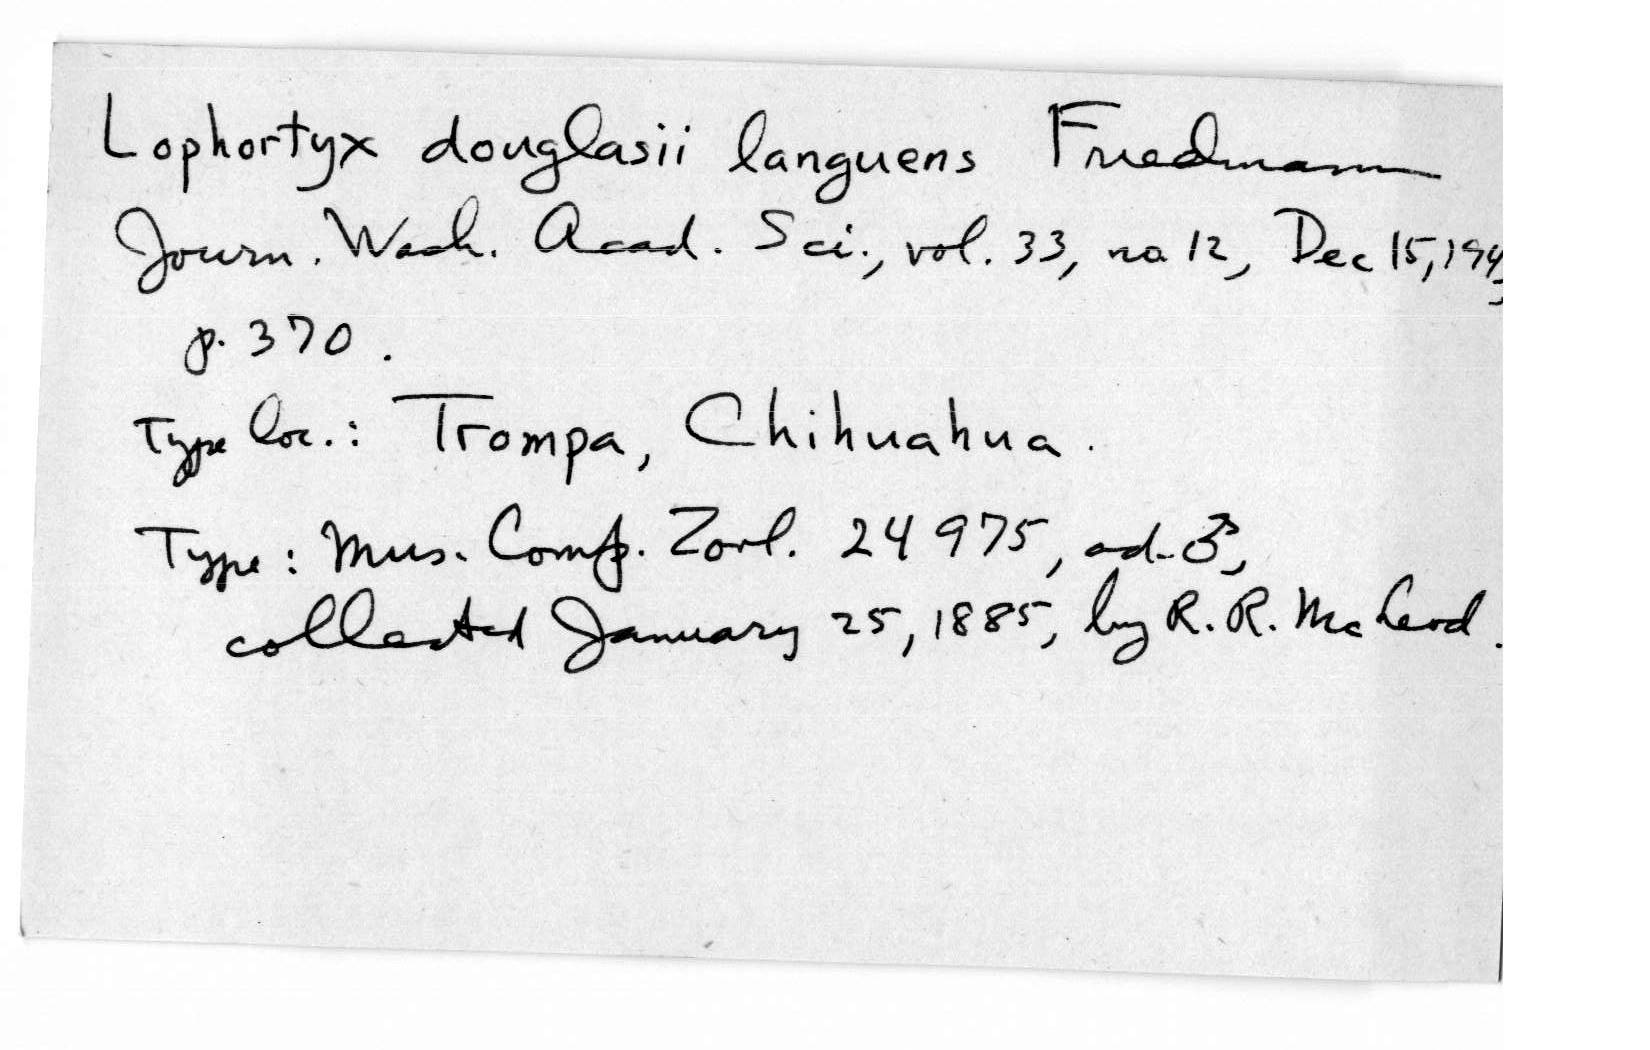 Lophortyx douglasii languens Friedmann
Journ. Wash. Acad. Sci., vol. 33, no 12, Dec 15, 194
p. 370.
Type loc.: Trompa, Chihuahua.
Type: Mus. Comp. Zool. 24975, ad. ♂,
collected January 25, 1885, by R. R. McLeod.